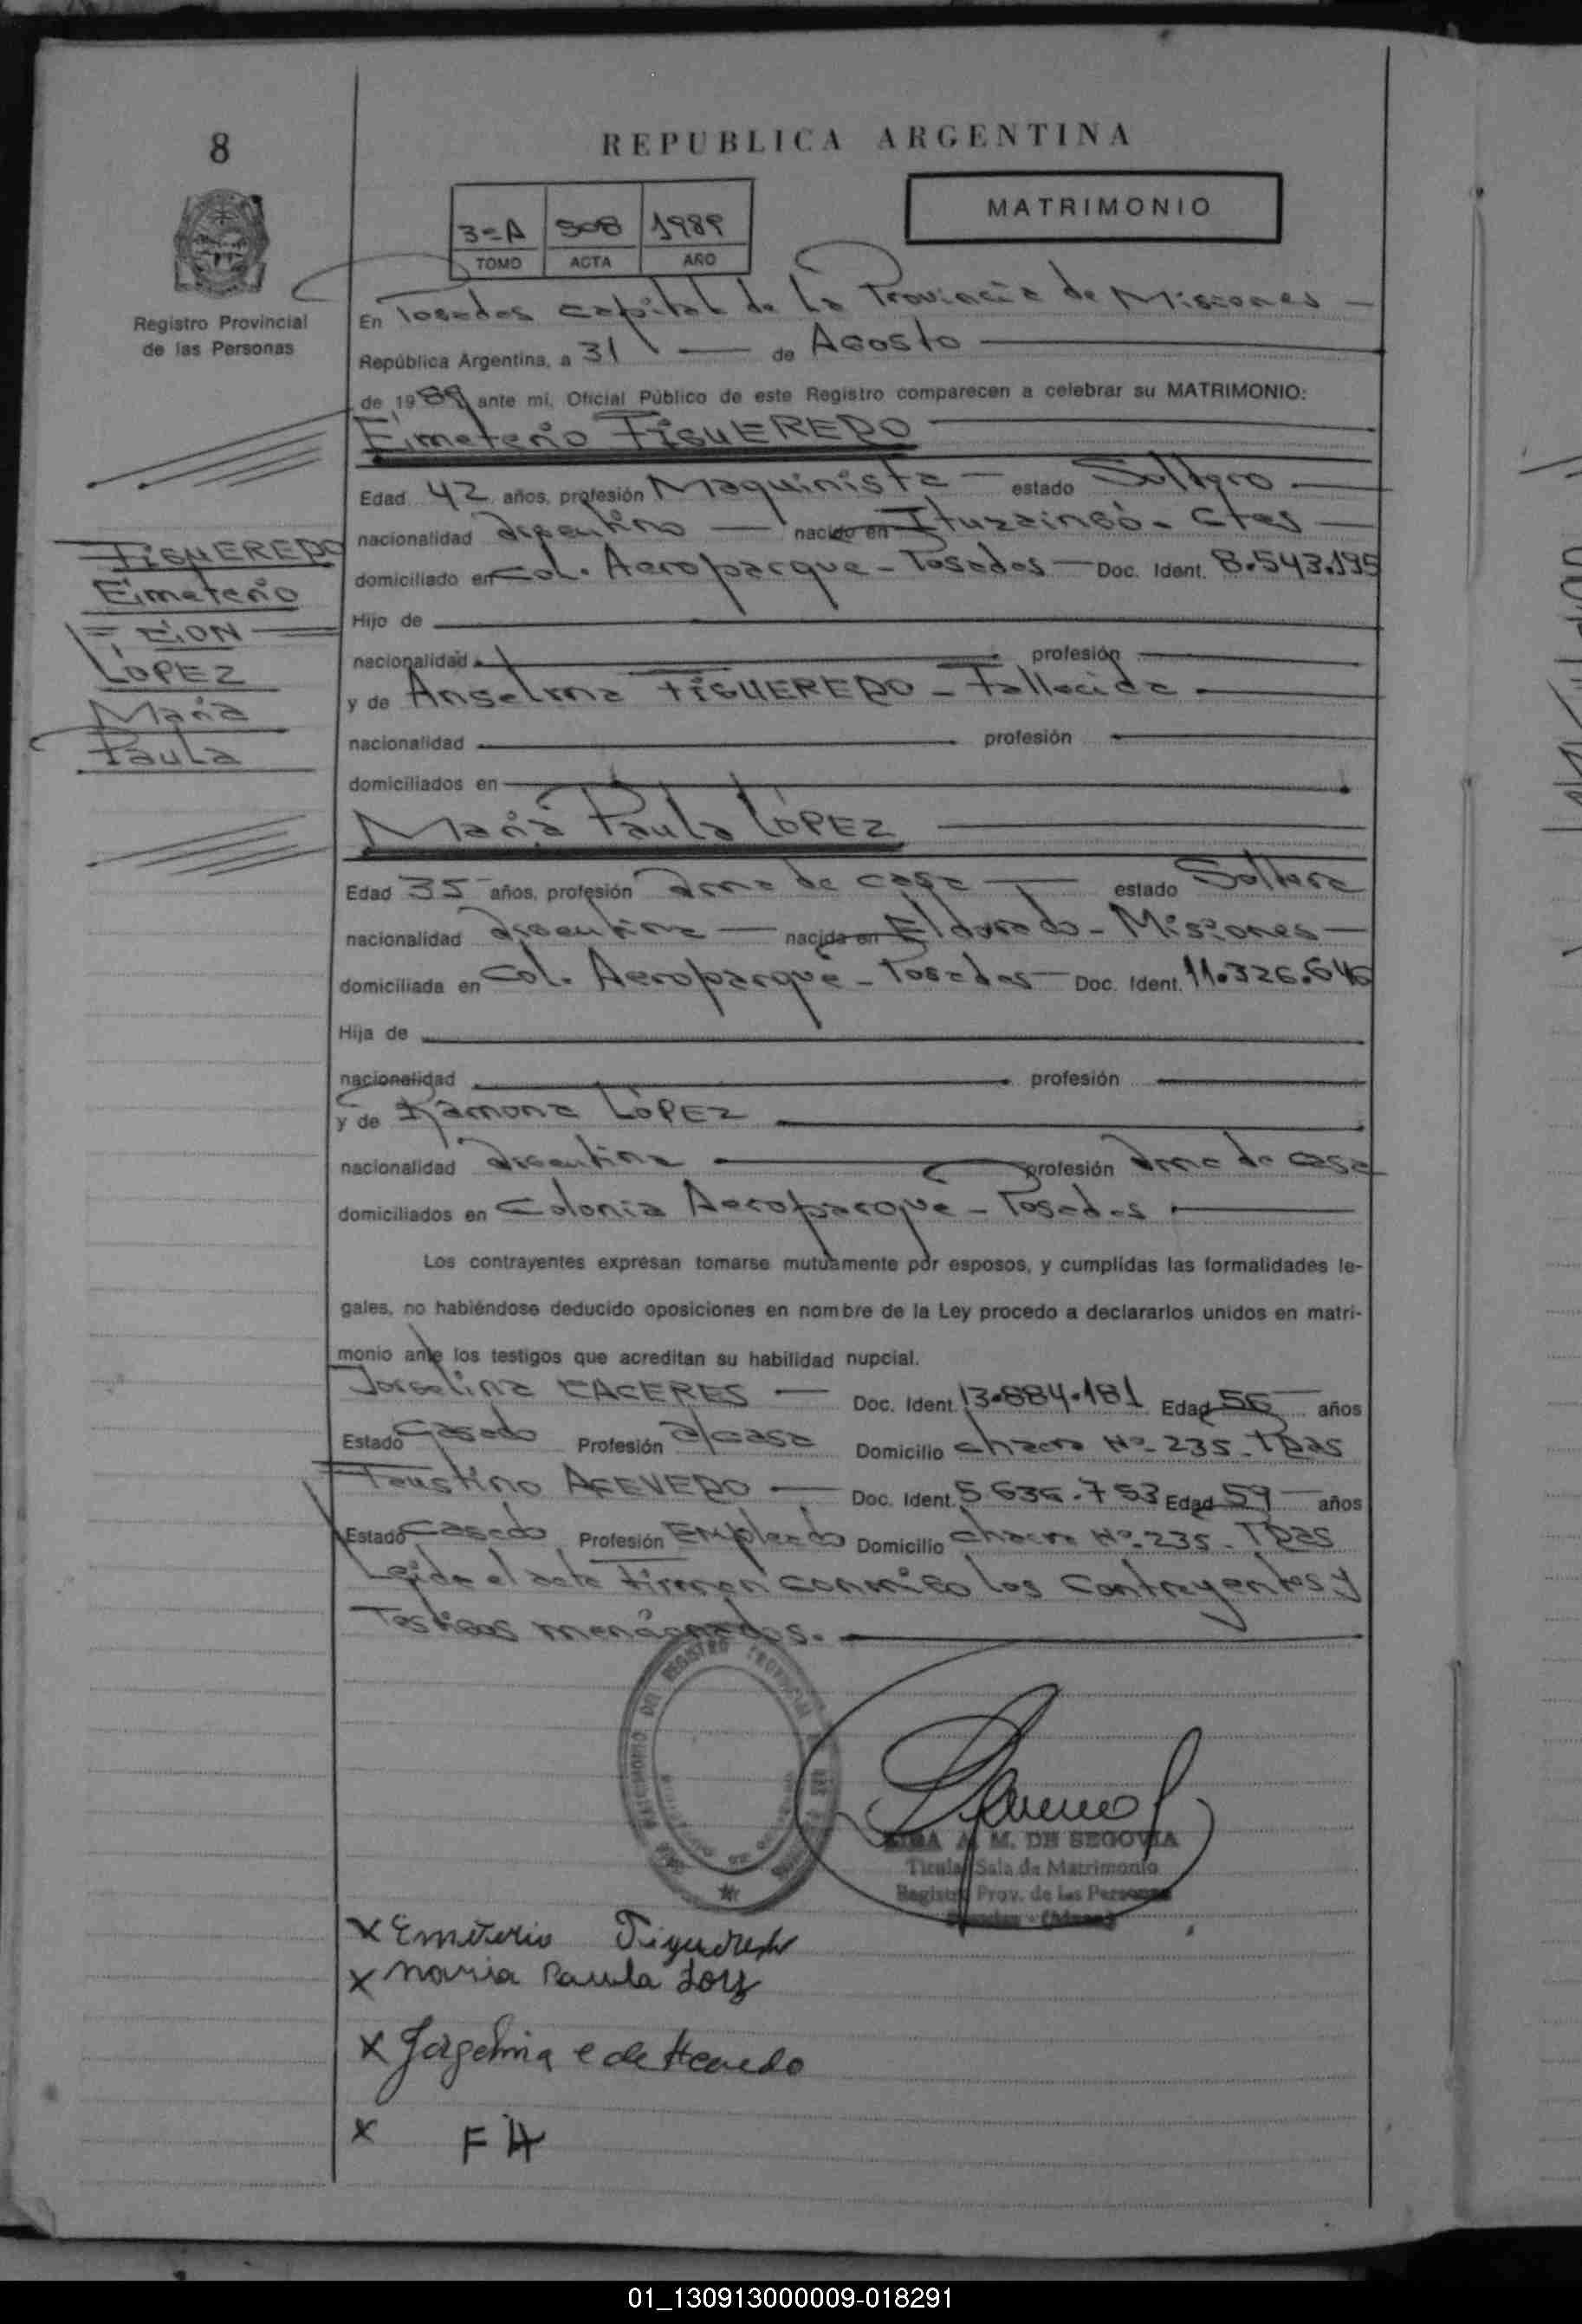 8
REPUBLICA ARGENTINA
MATRIMONIO
3=A 508 1989
TOMO ACTA AÑO
Registro Provincial
de las Personas
En Posadas capital de la Provincia de Misiones
República Argentina, a 31 de Agosto
de 1989 ante mí, Oficial Público de este Registro comparecen a celebrar su MATRIMONIO:
Eimeterio FIGUEREDO
Edad 42 años, profesión Maquinista estado Soltero
nacionalidad argentino nacido en Ituzaingó - Ctes
domiciliado en Col. Aeroparque - Posadas Doc. Ident. 8.543.195
Hijo de
nacionalidad profesión
y de Anselma FIGUEREDO - Fallecida
nacionalidad profesión
domiciliados en
FIGUEREDO
Eimeterio
= CON =
LÓPEZ
María
Paula
María Paula LÓPEZ
Edad 35 años, profesión ama de casa estado Soltera
nacionalidad argentina nacida en Eldorado - Misiones
domiciliada en Col. Aeroparque - Posadas Doc. Ident. 11.326.646
Hija de
nacionalidad profesión
y de Ramona LÓPEZ
nacionalidad argentina profesión ama de casa
domiciliados en Colonia Aeroparque - Posadas
Los contrayentes expresan tomarse mutuamente por esposos, y cumplidas las formalidades le-
gales, no habiéndose deducido oposiciones en nombre de la Ley procedo a declararlos unidos en matri-
monio ante los testigos que acreditan su habilidad nupcial.
Jorgelina CACERES Doc. Ident. 13.884.181 Edad 56 años
Estado Casado Profesión a/casa Domicilio chacra Nº 235 - Pdas
Faustino ACEVEDO Doc. Ident. 5636.753 Edad 59 años
Estado Casado Profesión Empleado Domicilio chacra Nº 235 - Pdas
Leída el acta firman conmigo los Contrayentes y
Testigos mencionados.
A. M. DE SEGOVIA
Titular Sala de Matrimonio
Registro Prov. de las Personas
x Emeterio Figueredo
x Maria Paula Lopez
x Jorgelina C de Acevedo
x FA
01_130913000009-018291